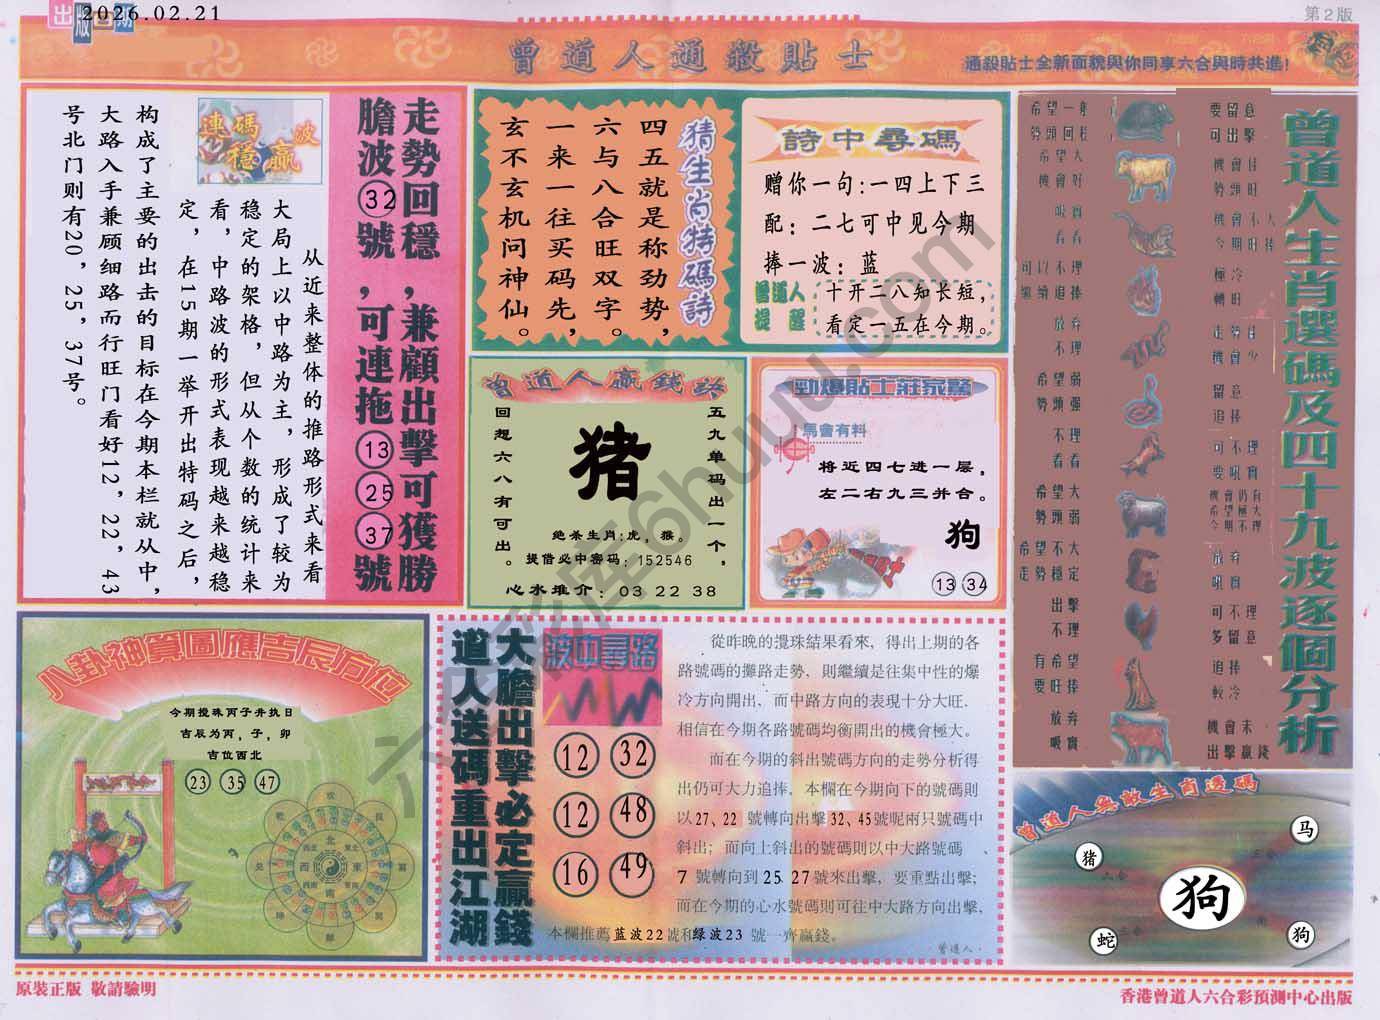 出版日期
2026.02.21
第2版
曾道人通殺貼士
通殺貼士全新面貌與你同享六合與時共進!
走勢回穩,兼顧出擊可獲勝
膽波32號,可連拖13 25 37號
連碼波
穩贏
从近来整体的推路形式来看
大局上以中路为主，形成了较为
稳定的架格，但从个数的统计来
看，中路波的形式表现越来越稳
定，在15期一举开出特码之后，
构成了主要的出击的目标在今期本栏就从中，
大路入手兼顾细路而行旺门看好12，22，43
号北门则有20，25，37号。
猜生肖特碼詩
四五就是称劲势，
六与八合旺双字。
一来一往买码先，
玄不玄机问神仙。
詩中尋碼
赠你一句:一四上下三
配：二七可中见今期
捧一波：蓝
曾道人
提醒
十开二八知长短，
看定一五在今期。
曾道人赢錢
五九单码出一个，
回想六八有可出。
猪
绝杀生肖:虎，猴。
提借必中密码：152546
心水推介：03 22 38
勁爆貼士莊家驚
馬會有料
将近四七进一层，
左二右九三并合。
狗
13 34
曾道人生肖選碼及四十九波逐個分析
希望一射
勢頭回穩
希望大
機會好
吸實
看看
可以不理
繼續追捧
放弃
不理
希望弱
勢頭强
不理
看看
希望大
勢頭弱
希望不大
走勢穩定
出擊
不理
有希望
要旺捧
放弃
吸實
要留意
可出擊
機會佳
勢頭旺
機會不大
今期旺捧
極冷
轉旺
走勢佳
機會少
留意
追捧
可不理
要吼實
機會仍有
希望極大
今期不理
放弃
吼實
可不理
多留意
追捧
較冷
機會未
出擊赢錢
八卦神算圖應吉辰方位
今期搅珠丙子井执日
吉辰为丙，子，卯
吉位西北
23 35 47
北
東
南
西
大膽出擊必定贏錢
道人送碼重出江湖
波中尋路
12 32
12 48
16 49
從昨晚的攪珠結果看來，得出上期的各
路號碼的攤路走勢，則繼續是往集中性的爆
冷方向開出，而中路方向的表現十分大旺.
相信在今期各路號碼均衡開出的機會極大。
而在今期的斜出號碼方向的走勢分析得
出仍可大力追捧，本欄在今期向下的號碼則
以27、22 號轉向出擊32、45號呢兩只號碼中
斜出；而向上斜出的號碼則以中大路號碼、
7 號轉向到25 27號來出擊，要重點出擊；
而在今期的心水號碼則可往中大路方向出擊，
本欄推薦蓝波22號和绿波23 號一齊贏錢。
曾道人·
曾道人無敵生肖透碼
马
猪
狗
蛇
狗
六合
三合
原裝正版 敬請驗明
香港曾道人六合彩預測中心出版
六合彩库6huuu.com